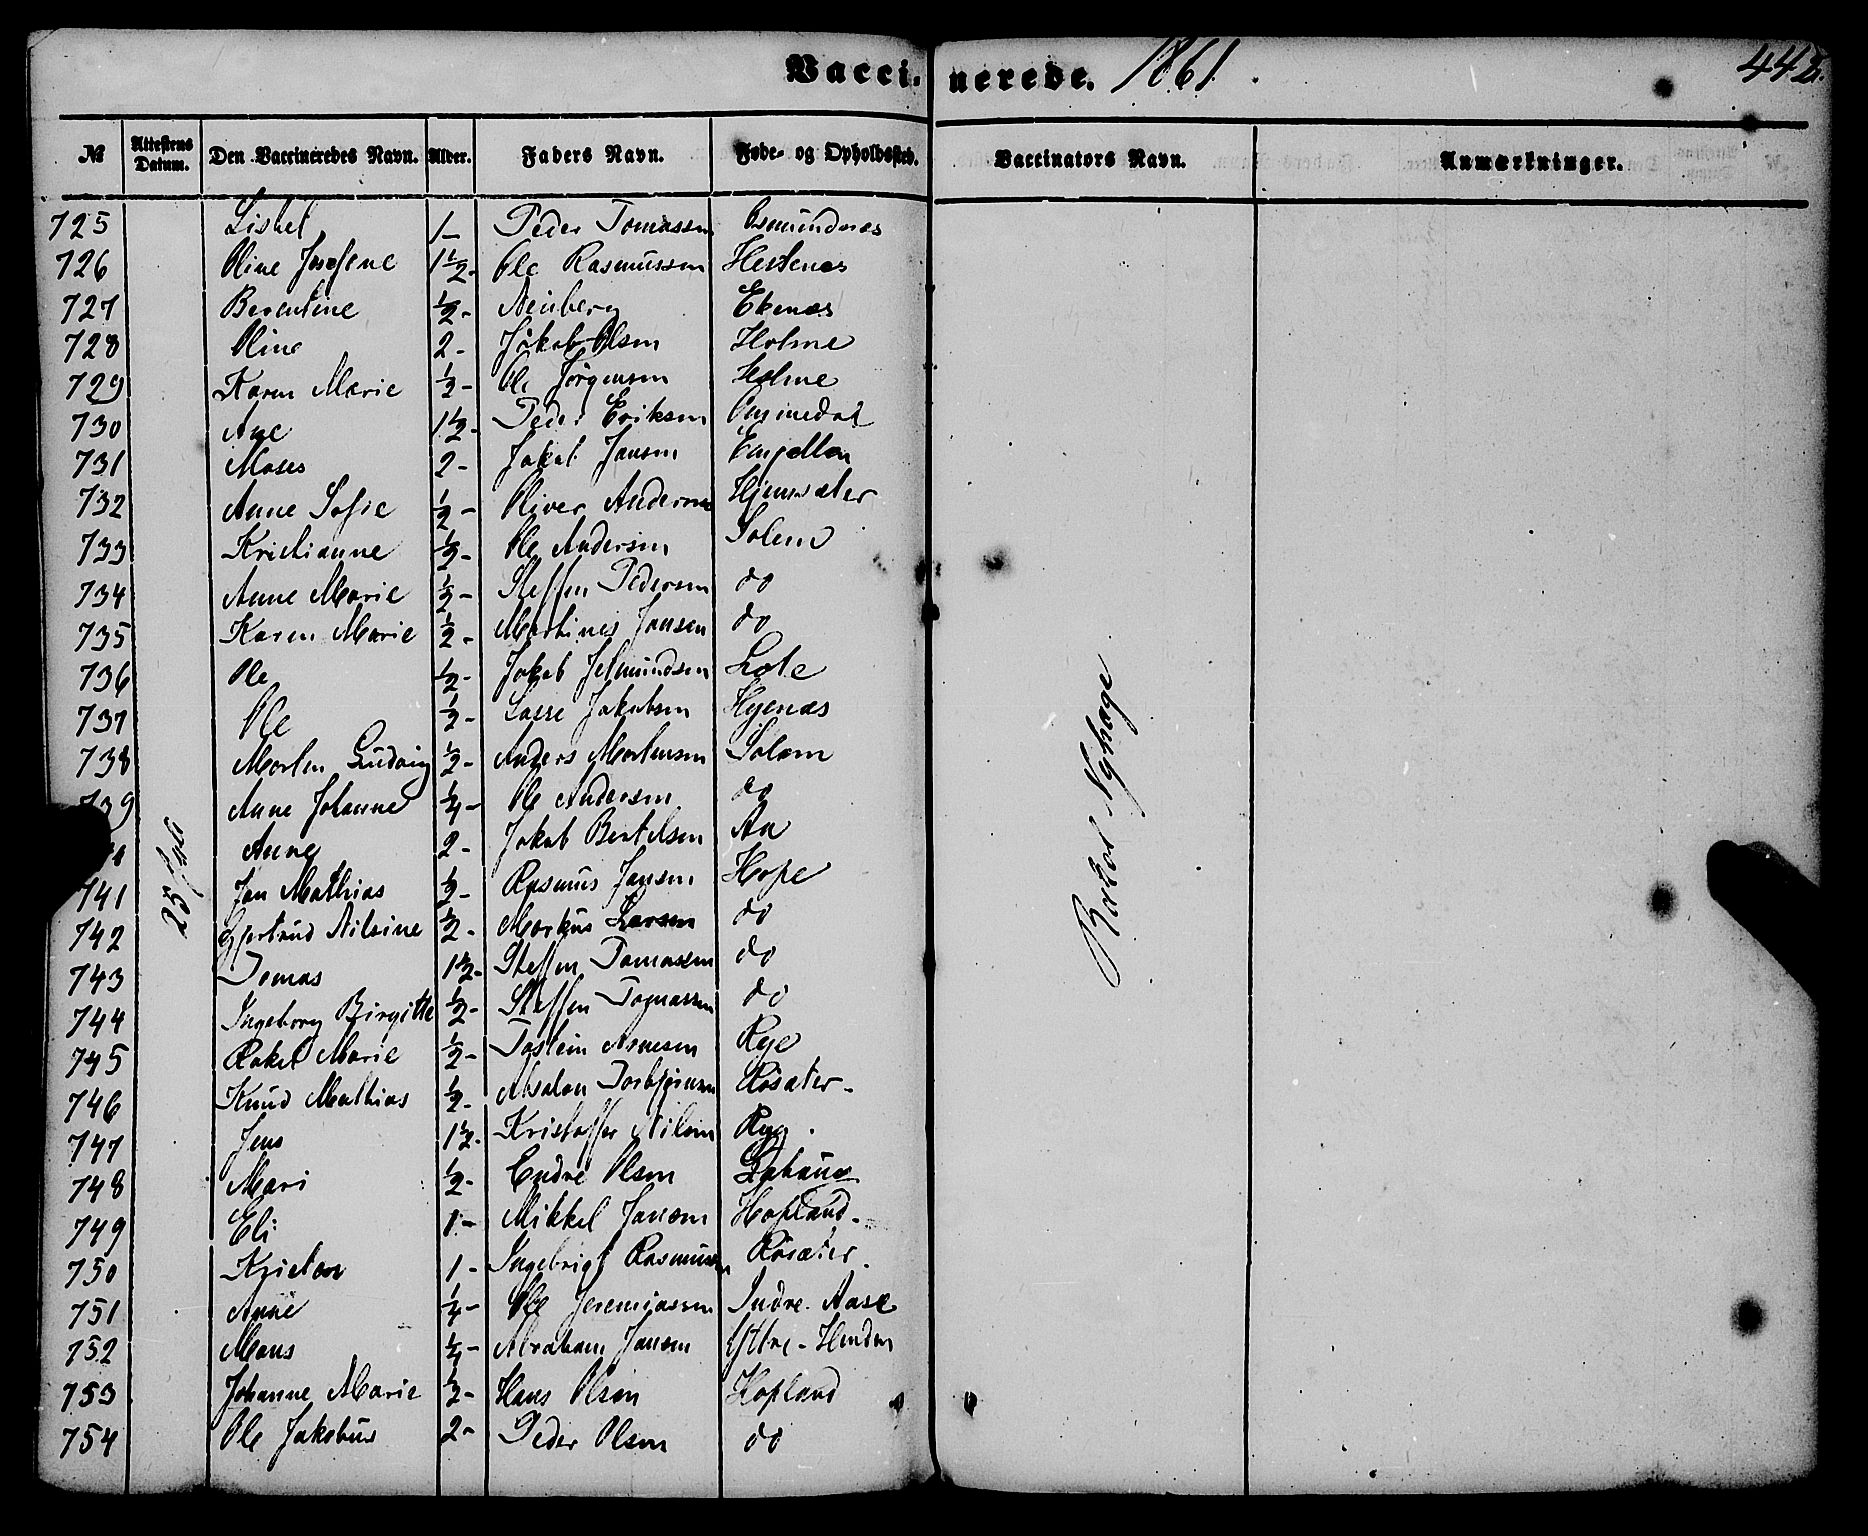 Vaccinerede. 1861.
№ Attestens Datum. Den Vaccineredes Navn. Alder. Faders Navn. Føde- og Opholdssted. Vaccinators Navn. Anmærkninger.
725 Lisbet 1- Peder Tomassen Osmundnes
726 Oline Josefine 1½- Ole Rasmussen Hestenes
727 Berentine ½- Neuberg Ekenæs
728 Oline 2- Jakob Olsen Holme
729 Karen Marie ½- Ole Jörgensen Holme
730 Ane 1½- Peder Eriksen
731 Moses 2- Jakob Jansen
732 Anne Sofie ½- Oliver Andersen
733 Kristianne ½- Ole Andersen Solem
734 Anne Marie ½- Steffen Pedersen do
735 Karen Marie ½- Martines Jansen do
736 Ole ½- Jakob Jetmundsen Lote
737 Ole ½- Lasse Jakobsen Hyenæs
738 Morten Ludvig ½- Anders Mortensen Solem
739 Anne Johanne ¼- Ole Andersen do
Anne 2- Jakob Bertelsen Aa
741 Jan Mathias ½- Rasmus Jansen Hope
742 Gjertrud Nilsine ½- Markus Larsen do
743 Tomas 1½- Steffen Tomassen do
744 Ingeborg Birgitte ½- Steffen Tomassen do
745 Rakel Marie ½- Tostein Arnesen Rye
746 Knud Mathias ½- Absalon Torbjørnsen Røsæter-
747 Jens 1½- Kristoffer Nilsen Ryg.
748 Mari ½- Endre Olsen
749 Eli 1- Mikkel Jansen Hopland-
750 1- Ingebrigt Rasmussen Røsæter.
751 Anne ¼- Ole Jeremiassen Indre-Aase
752 Mons ¼- Abraham Jansen Yttre-Henden
753 Johanne Marie ½- Hans Olsen Hopland
754 Ole Jakobus 2- Peder Olsen do
Nyhage